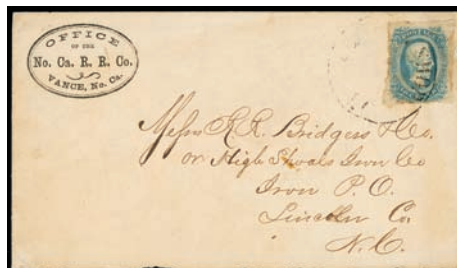 OFFICE
OF THE
No. Ca. R. R. Co.
VANCE, No. Ca.
Messrs R. R. Bridgers & Co.
or High Shoals Iron Co
Iron P. O.
Lincoln Co.
N. C.